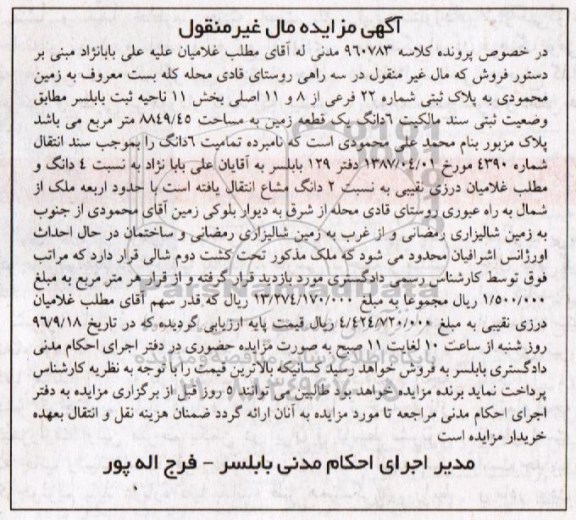 آگهی مزایده مال غیرمنقول
در خصوص پرونده کلاسه ۹۶۰۷۸۳ مدنی له آقای مطلب غلامیان علیه علی بابانژاد مبنی بر
دستور فروش که مال غیر منقول در سه راهی روستای قادی محله کله بست معروف به زمین
محمودی به پلاک ثبتی شماره ۲۲ فرعی از ۸ و ۱۱ اصلی بخش ۱۱ ناحیه ثبت بابلسر مطابق
وضعیت ثبتی سند مالکیت ۶دانگ یک قطعه زمین به مساحت ۸۸۴۹/۴۵ متر مربع می باشد
پلاک مزبور بنام محمد علی محمودی است که نامبرده تمامیت ۶دانگ را بموجب سند انتقال
شماره ۴۳۹۰ مورخ ۱۳۸۷/۰۴/۰۱ دفتر ۱۲۹ بابلسر به آقایان علی بابا نژاد به نسبت ۴ دانگ و
مطلب غلامیان درزی نقیبی به نسبت ۲ دانگ مشاع انتقال یافته است با حدود اربعه ملک از
شمال به راه عبوری روستای قادی محله از شرق به دیوار بلوکی زمین آقای محمودی از جنوب
به زمین شالیزاری رمضانی و از غرب به زمین شالیزاری رمضانی و ساختمان در حال احداث
اورژانس اشرافیان محدود می شود که ملک مذکور تحت کشت دوم شالی قرار دارد که مراتب
فوق توسط کارشناس رسمی دادگستری مورد بازدید قرار گرفته و از قرار هر متر مربع به مبلغ
۱/۵۰۰/۰۰۰ ریال مجموعا به مبلغ ۱۳/۲۷۴/۱۷۰/۰۰۰ ریال که قدر سهم آقای مطلب غلامیان
درزی نقیبی به مبلغ ۴/۴۲۴/۷۲۰/۰۰۰ ریال قیمت پایه ارزیابی گردیده که در تاریخ ۹۶/۹/۱۸
روز شنبه از ساعت ۱۰ لغایت ۱۱ صبح به صورت مزایده حضوری در دفتر اجرای احکام مدنی
دادگستری بابلسر به فروش خواهد رسید کسانیکه بالاترین قیمت را با توجه به نظریه کارشناس
پرداخت نماید برنده مزایده خواهد بود طالبین می توانند ۵ روز قبل از برگزاری مزایده به دفتر
اجرای احکام مدنی مراجعه تا مورد مزایده به آنان ارائه گردد ضمنان هزینه نقل و انتقال بعهده
خریدار مزایده است
مدیر اجرای احکام مدنی بابلسر – فرج اله پور